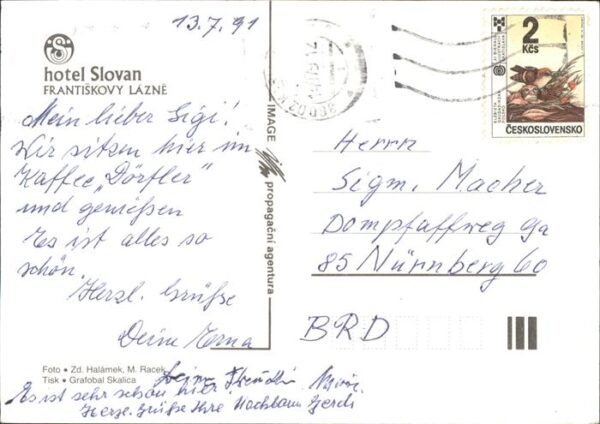 13.7.91
hotel Slovan
FRANTIŠKOVY LÁZNĚ
Mein lieber Sigi!
Wir sitzen hier im
Kaffee „Dörfler"
und genießen
Es ist alles so
schön.
Herzl. Grüße
Deine Erna
Foto • Zd. Halámek, M. Racek
Tisk • Grafobal Skalica
Es ist sehr schön hier.
Herzl. Grüße Ihre Nachbarn
IMAGE propagační agentura
2
Kčs
ČESKOSLOVENSKO
Herrn
Sigm. Macher
Dompfaffweg 9a
85 Nürnberg 60
BRD